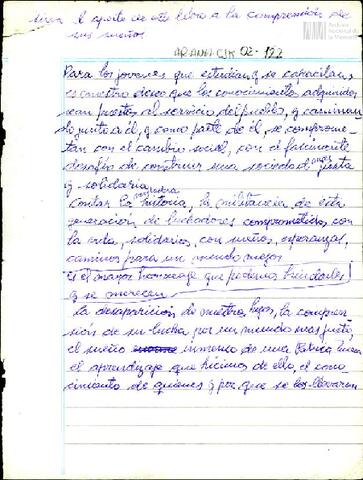 sirva el aporte de este libro a la comprensión de
sus sueños
Archivo Nacional de la Memoria
Para los jóvenes que estudian y se capacitan
es nuestro deseo que los conocimientos adquiridos
sean puestos al servicio del pueblo, y caminan
do junto a él, y como parte de él, se comprome-
tan con el cambio social, con el fascinante
desafío de construir una sociedad mas justa
y solidaria
contar la nuestra historia, la militancia de esta
generación de luchadores comprometidos con
la vida, solidarios, con sueños, esperanzas,
caminos para un mundo mejor
es el mayor homenaje que podemos brindarles
y se merecen
la desaparición de nuestros hijos, la compren
sión de su lucha por un mundo mas justo,
el sueño inmenso de una Patria
el aprendizaje que hicimos de ello, el cono
cimiento de quienes y por que se los llevaron